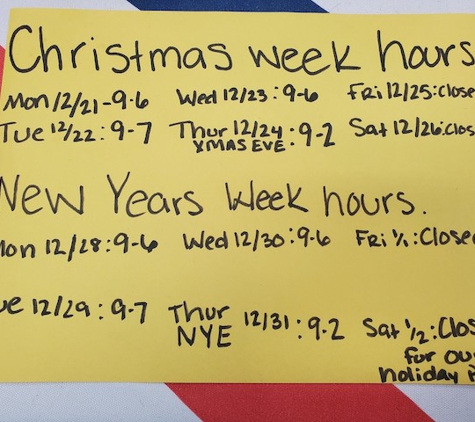 Christmas week hours
Mon 12/21-9-6 Wed 12/23:9-6 Fri 12/25:Close
Tue 12/22:9-7 Thur 12/24:9-2 Sat 12/26:Clos
XMAS EVE
New Years Week hours.
Mon 12/28:9-6 Wed 12/30:9-6 Fri 1/1:Closed
ue 12/29:9-7 Thur 12/31:9-2 Sat 1/2:Clos
NYE for ou
holiday